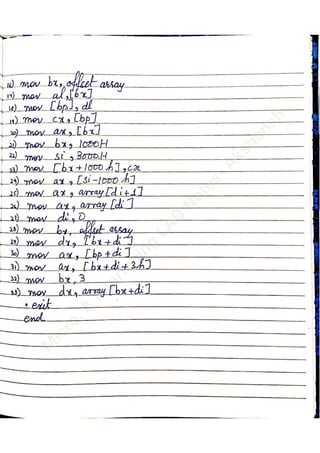 16) mov bx, offset array
17) mov al, [bx]
18) mov [bp], dl
19) mov cx, [bp]
20) mov ax, [bx]
21) mov bx, 1000H
22) mov si, 3000H
23) mov [bx+1000h], cx
24) mov ax, [si-1000h]
25) mov ax, array [di+1]
26) mov ax, array [di]
27) mov di, 0
28) mov bx, offset array
29) mov dx, [bx+di]
30) mov ax, [bp+di]
31) mov ax, [bx+di+3h]
32) mov bx, 3
33) mov dx, array [bx+di]
.exit
end